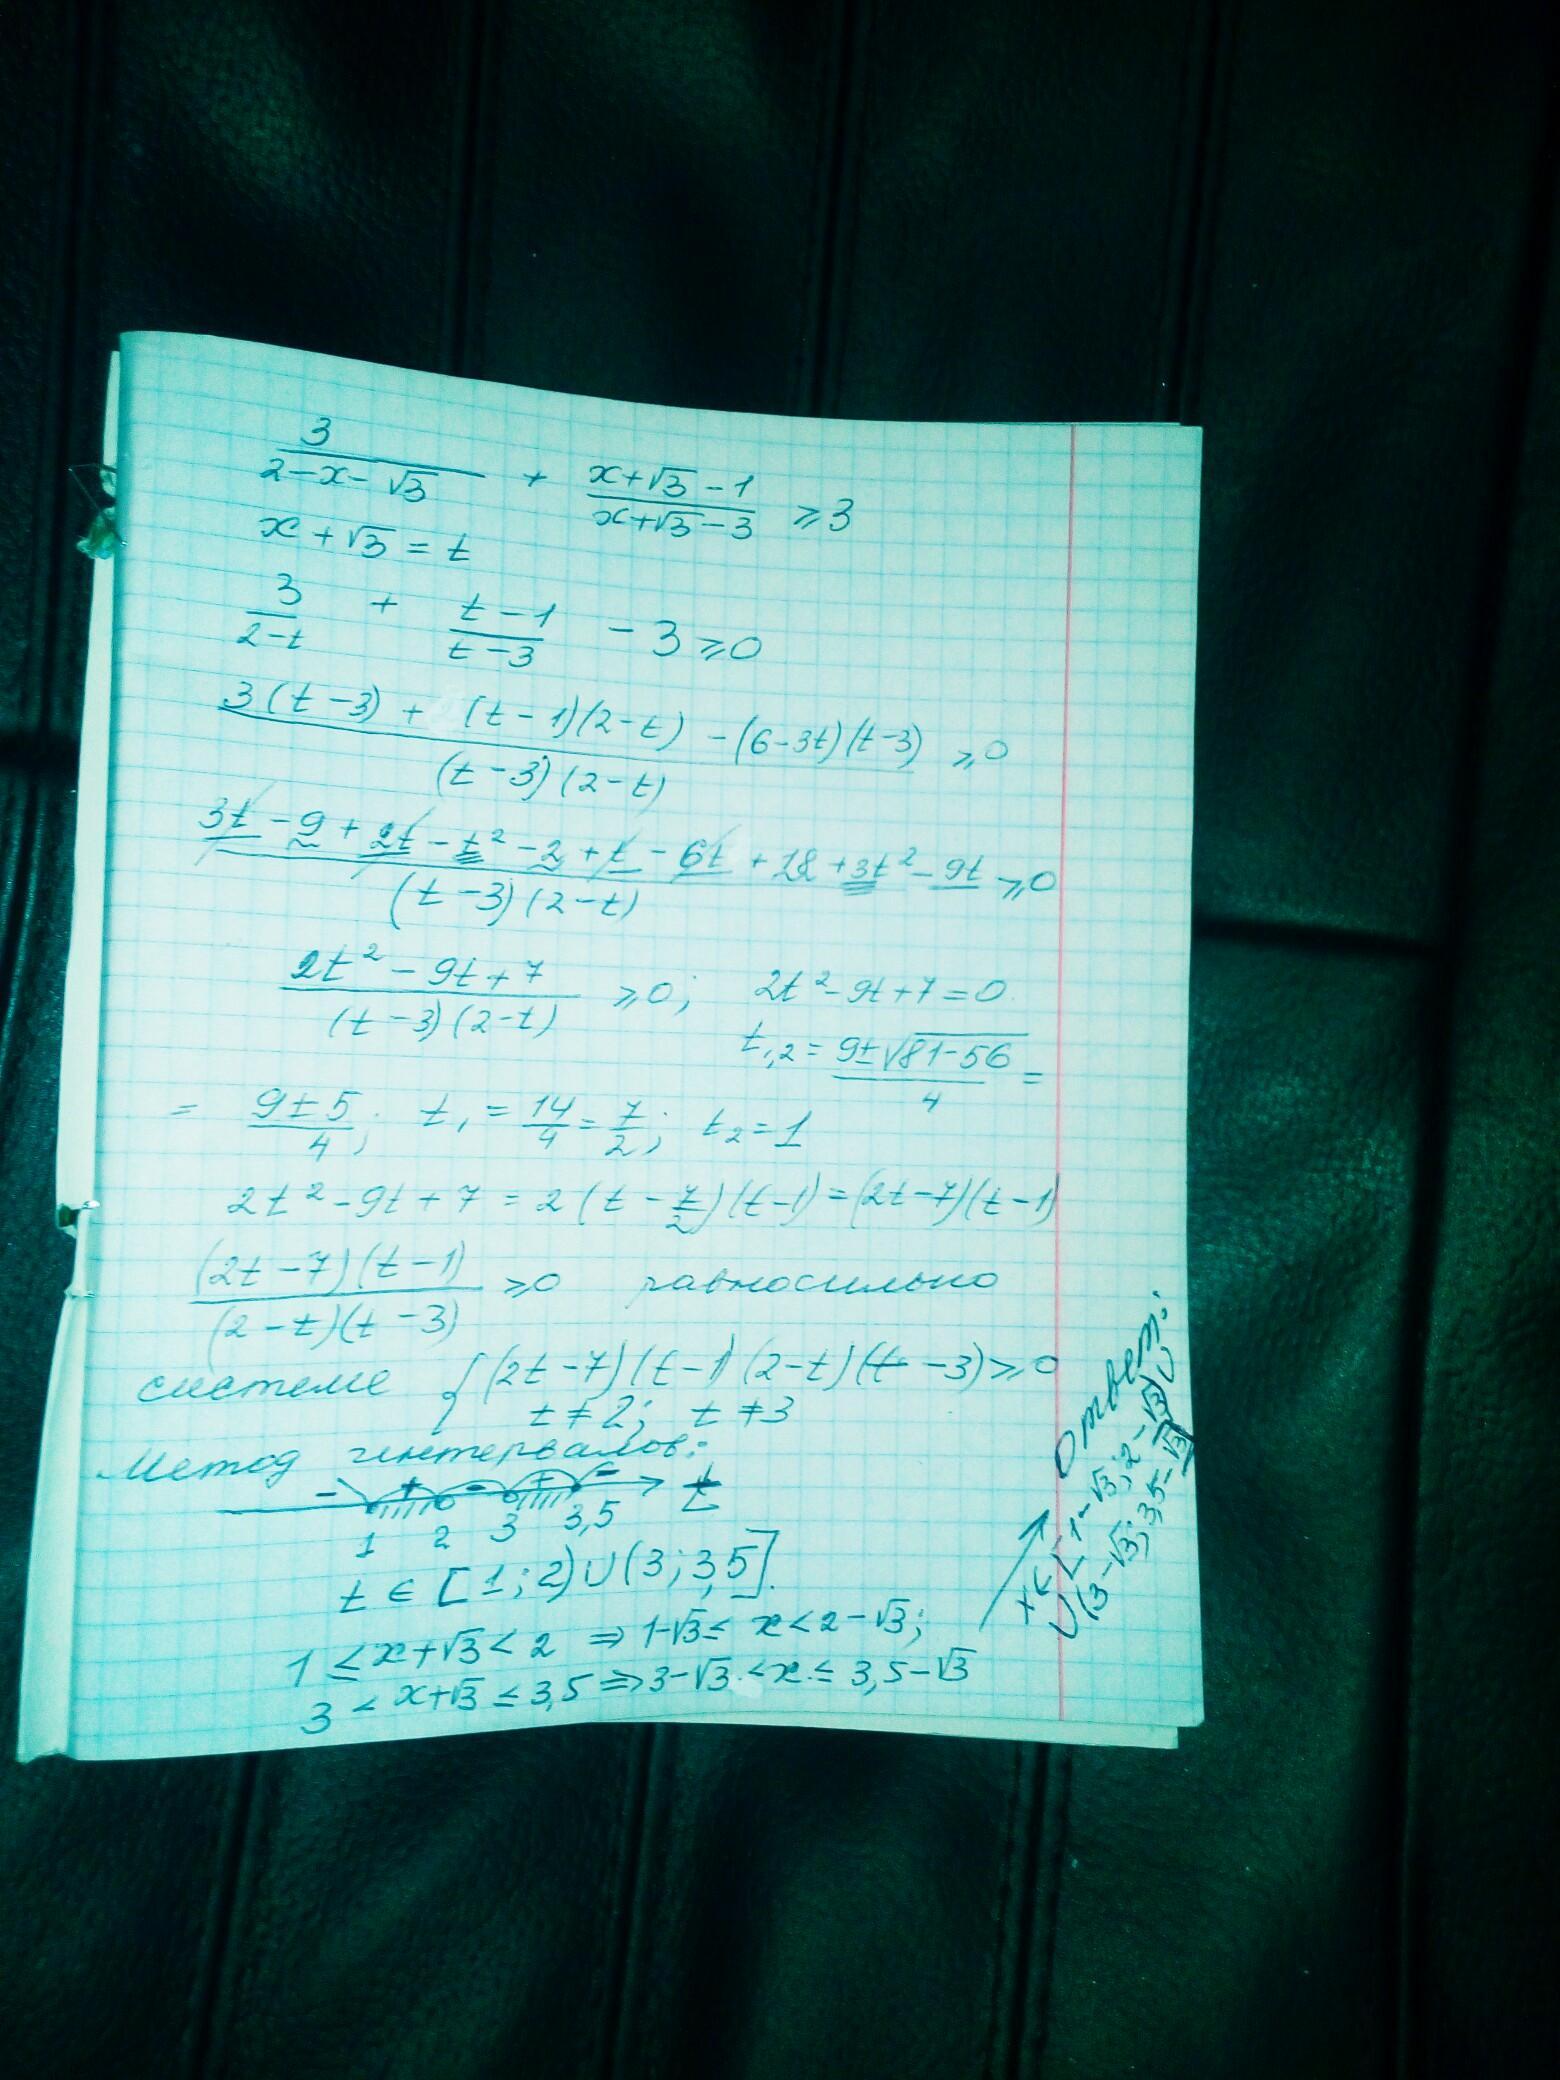 3/(2-x-√3) + (x+√3-1)/(x+√3-3) ⩾3
x+√3=t
3/(2-t) + (t-1)/(t-3) -3⩾0
(3(t-3)+(t-1)(2-t)-(6-3t)(t-3))/((t-3)(2-t)) ⩾0
(3t-9+2t-t²-2+t-6t+18+3t²-9t)/((t-3)(2-t)) ⩾0
(2t²-9t+7)/((t-3)(2-t)) ⩾0; 2t²-9t+7=0
t₁,₂=(9±√(81-56))/4=
= (9±5)/4; t₁=14/4=7/2; t₂=1
2t²-9t+7=2(t-7/2)(t-1)=(2t-7)(t-1)
((2t-7)(t-1))/((2-t)(t-3)) ⩾0 равносильно
системе {(2t-7)(t-1)(2-t)(t-3)⩾0
t≠2; t≠3
Метод интервалов:
- + - + - t
1 2 3 3,5
t∈[1;2)∪(3;3,5].
1≤x+√3<2 ⇒ 1-√3≤x<2-√3;
3<x+√3≤3,5⇒3-√3<x≤3,5-√3
Ответ:
x∈[1-√3;2-√3)∪
∪(3-√3;3,5-√3]